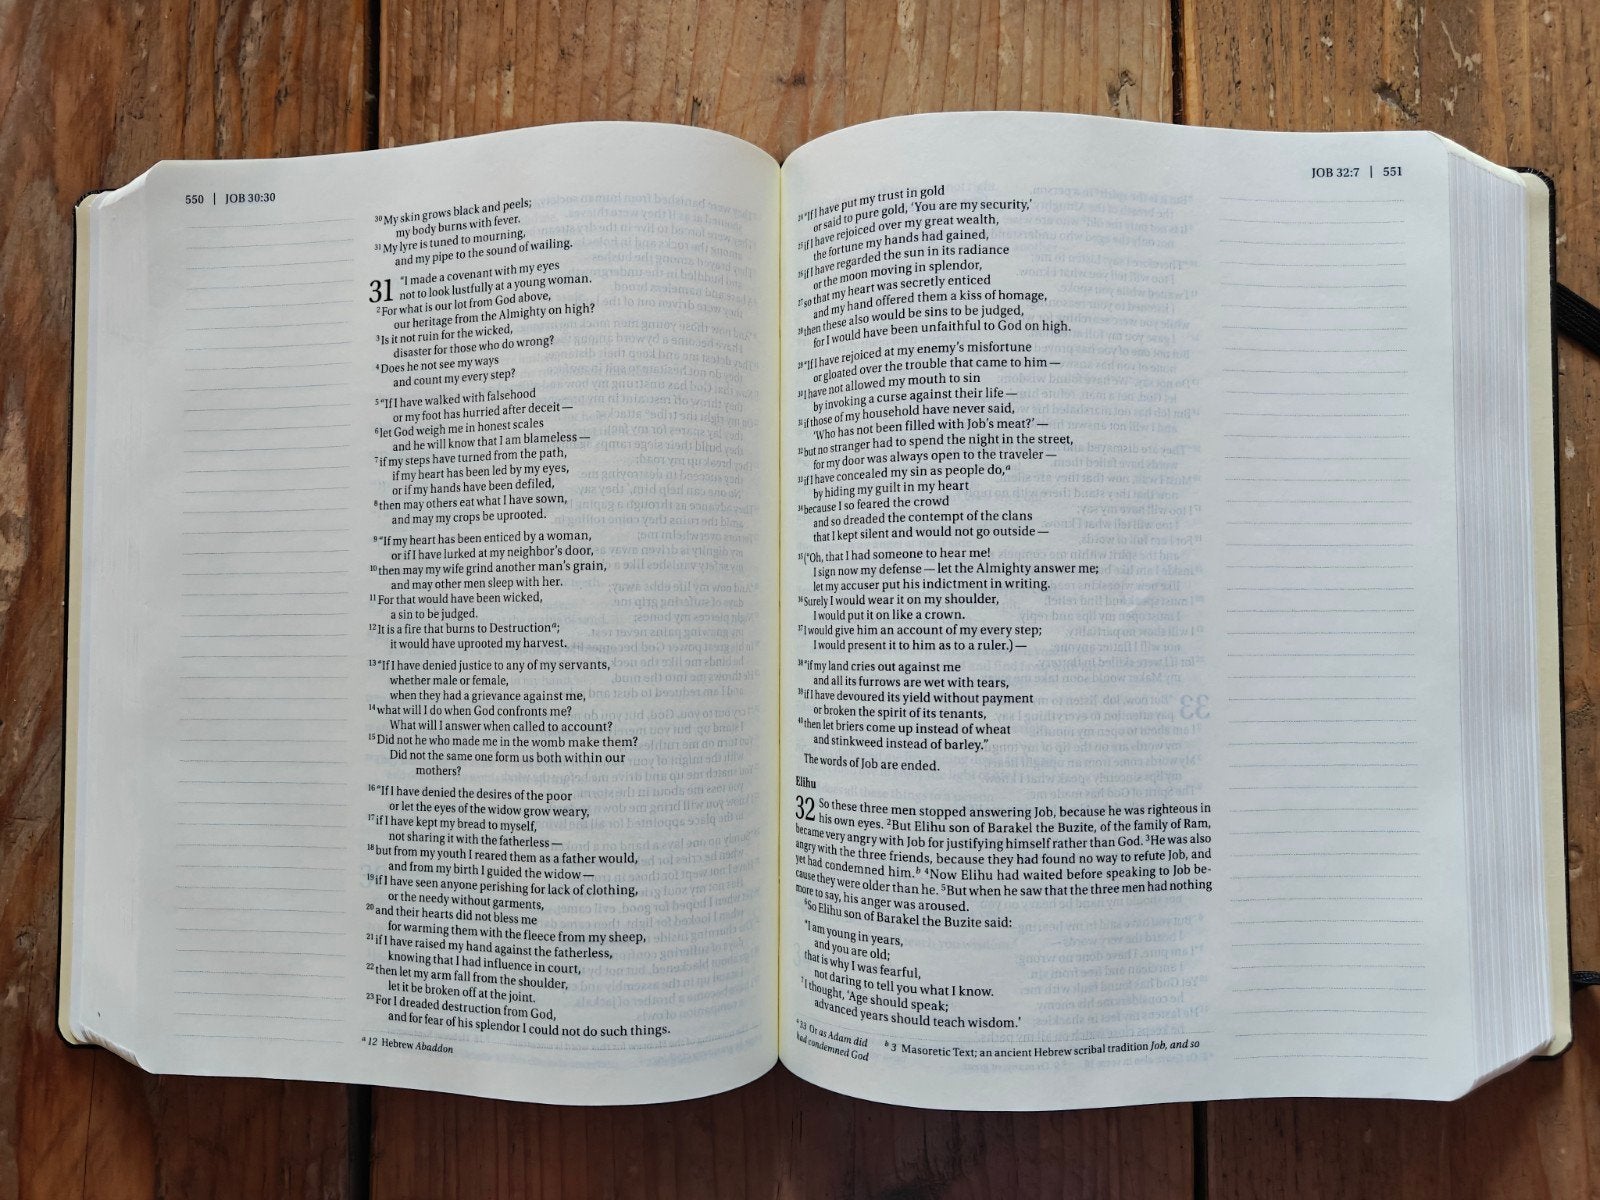 550 | JOB 30:30
30 My skin grows black and peels;
my body burns with fever.
31 My lyre is tuned to mourning,
and my pipe to the sound of wailing.
31 "I made a covenant with my eyes
not to look lustfully at a young woman.
2 For what is our lot from God above,
our heritage from the Almighty on high?
3 Is it not ruin for the wicked,
disaster for those who do wrong?
4 Does he not see my ways
and count my every step?
5 "If I have walked with falsehood
or my foot has hurried after deceit —
6 let God weigh me in honest scales
and he will know that I am blameless —
7 if my steps have turned from the path,
if my heart has been led by my eyes,
or if my hands have been defiled,
8 then may others eat what I have sown,
and may my crops be uprooted.
9 "If my heart has been enticed by a woman,
or if I have lurked at my neighbor's door,
10 then may my wife grind another man's grain,
and may other men sleep with her.
11 For that would have been wicked,
a sin to be judged.
12 It is a fire that burns to Destruction a;
it would have uprooted my harvest.
13 "If I have denied justice to any of my servants,
whether male or female,
when they had a grievance against me,
14 what will I do when God confronts me?
What will I answer when called to account?
15 Did not he who made me in the womb make them?
Did not the same one form us both within our
mothers?
16 "If I have denied the desires of the poor
or let the eyes of the widow grow weary,
17 if I have kept my bread to myself,
not sharing it with the fatherless —
18 but from my youth I reared them as a father would,
and from my birth I guided the widow —
19 if I have seen anyone perishing for lack of clothing,
or the needy without garments,
20 and their hearts did not bless me
for warming them with the fleece from my sheep,
21 if I have raised my hand against the fatherless,
knowing that I had influence in court,
22 then let my arm fall from the shoulder,
let it be broken off at the joint.
23 For I dreaded destruction from God,
and for fear of his splendor I could not do such things.
a 12 Hebrew Abaddon
JOB 32:7 | 551
24 "If I have put my trust in gold
or said to pure gold, 'You are my security,'
25 if I have rejoiced over my great wealth,
the fortune my hands had gained,
26 if I have regarded the sun in its radiance
or the moon moving in splendor,
27 so that my heart was secretly enticed
and my hand offered them a kiss of homage,
28 then these also would be sins to be judged,
for I would have been unfaithful to God on high.
29 "If I have rejoiced at my enemy's misfortune
or gloated over the trouble that came to him —
30 I have not allowed my mouth to sin
by invoking a curse against their life —
31 if those of my household have never said,
'Who has not been filled with Job's meat?' —
32 but no stranger had to spend the night in the street,
for my door was always open to the traveler —
33 if I have concealed my sin as people do, a
by hiding my guilt in my heart
34 because I so feared the crowd
and so dreaded the contempt of the clans
that I kept silent and would not go outside —
35 ("Oh, that I had someone to hear me!
I sign now my defense — let the Almighty answer me;
let my accuser put his indictment in writing.
36 Surely I would wear it on my shoulder,
I would put it on like a crown.
37 I would give him an account of my every step;
I would present it to him as to a ruler.) —
38 "if my land cries out against me
and all its furrows are wet with tears,
39 if I have devoured its yield without payment
or broken the spirit of its tenants,
40 then let briers come up instead of wheat
and stinkweed instead of barley."
The words of Job are ended.
Elihu
32 So these three men stopped answering Job, because he was righteous in
his own eyes. 2 But Elihu son of Barakel the Buzite, of the family of Ram,
became very angry with Job for justifying himself rather than God. 3 He was also
angry with the three friends, because they had found no way to refute Job, and
yet had condemned him. b 4 Now Elihu had waited before speaking to Job be-
cause they were older than he. 5 But when he saw that the three men had nothing
more to say, his anger was aroused.
6 So Elihu son of Barakel the Buzite said:
"I am young in years,
and you are old;
that is why I was fearful,
not daring to tell you what I know.
7 I thought, 'Age should speak;
advanced years should teach wisdom.'
a 33 Or as Adam did b 3 Masoretic Text; an ancient Hebrew scribal tradition Job, and so
had condemned God